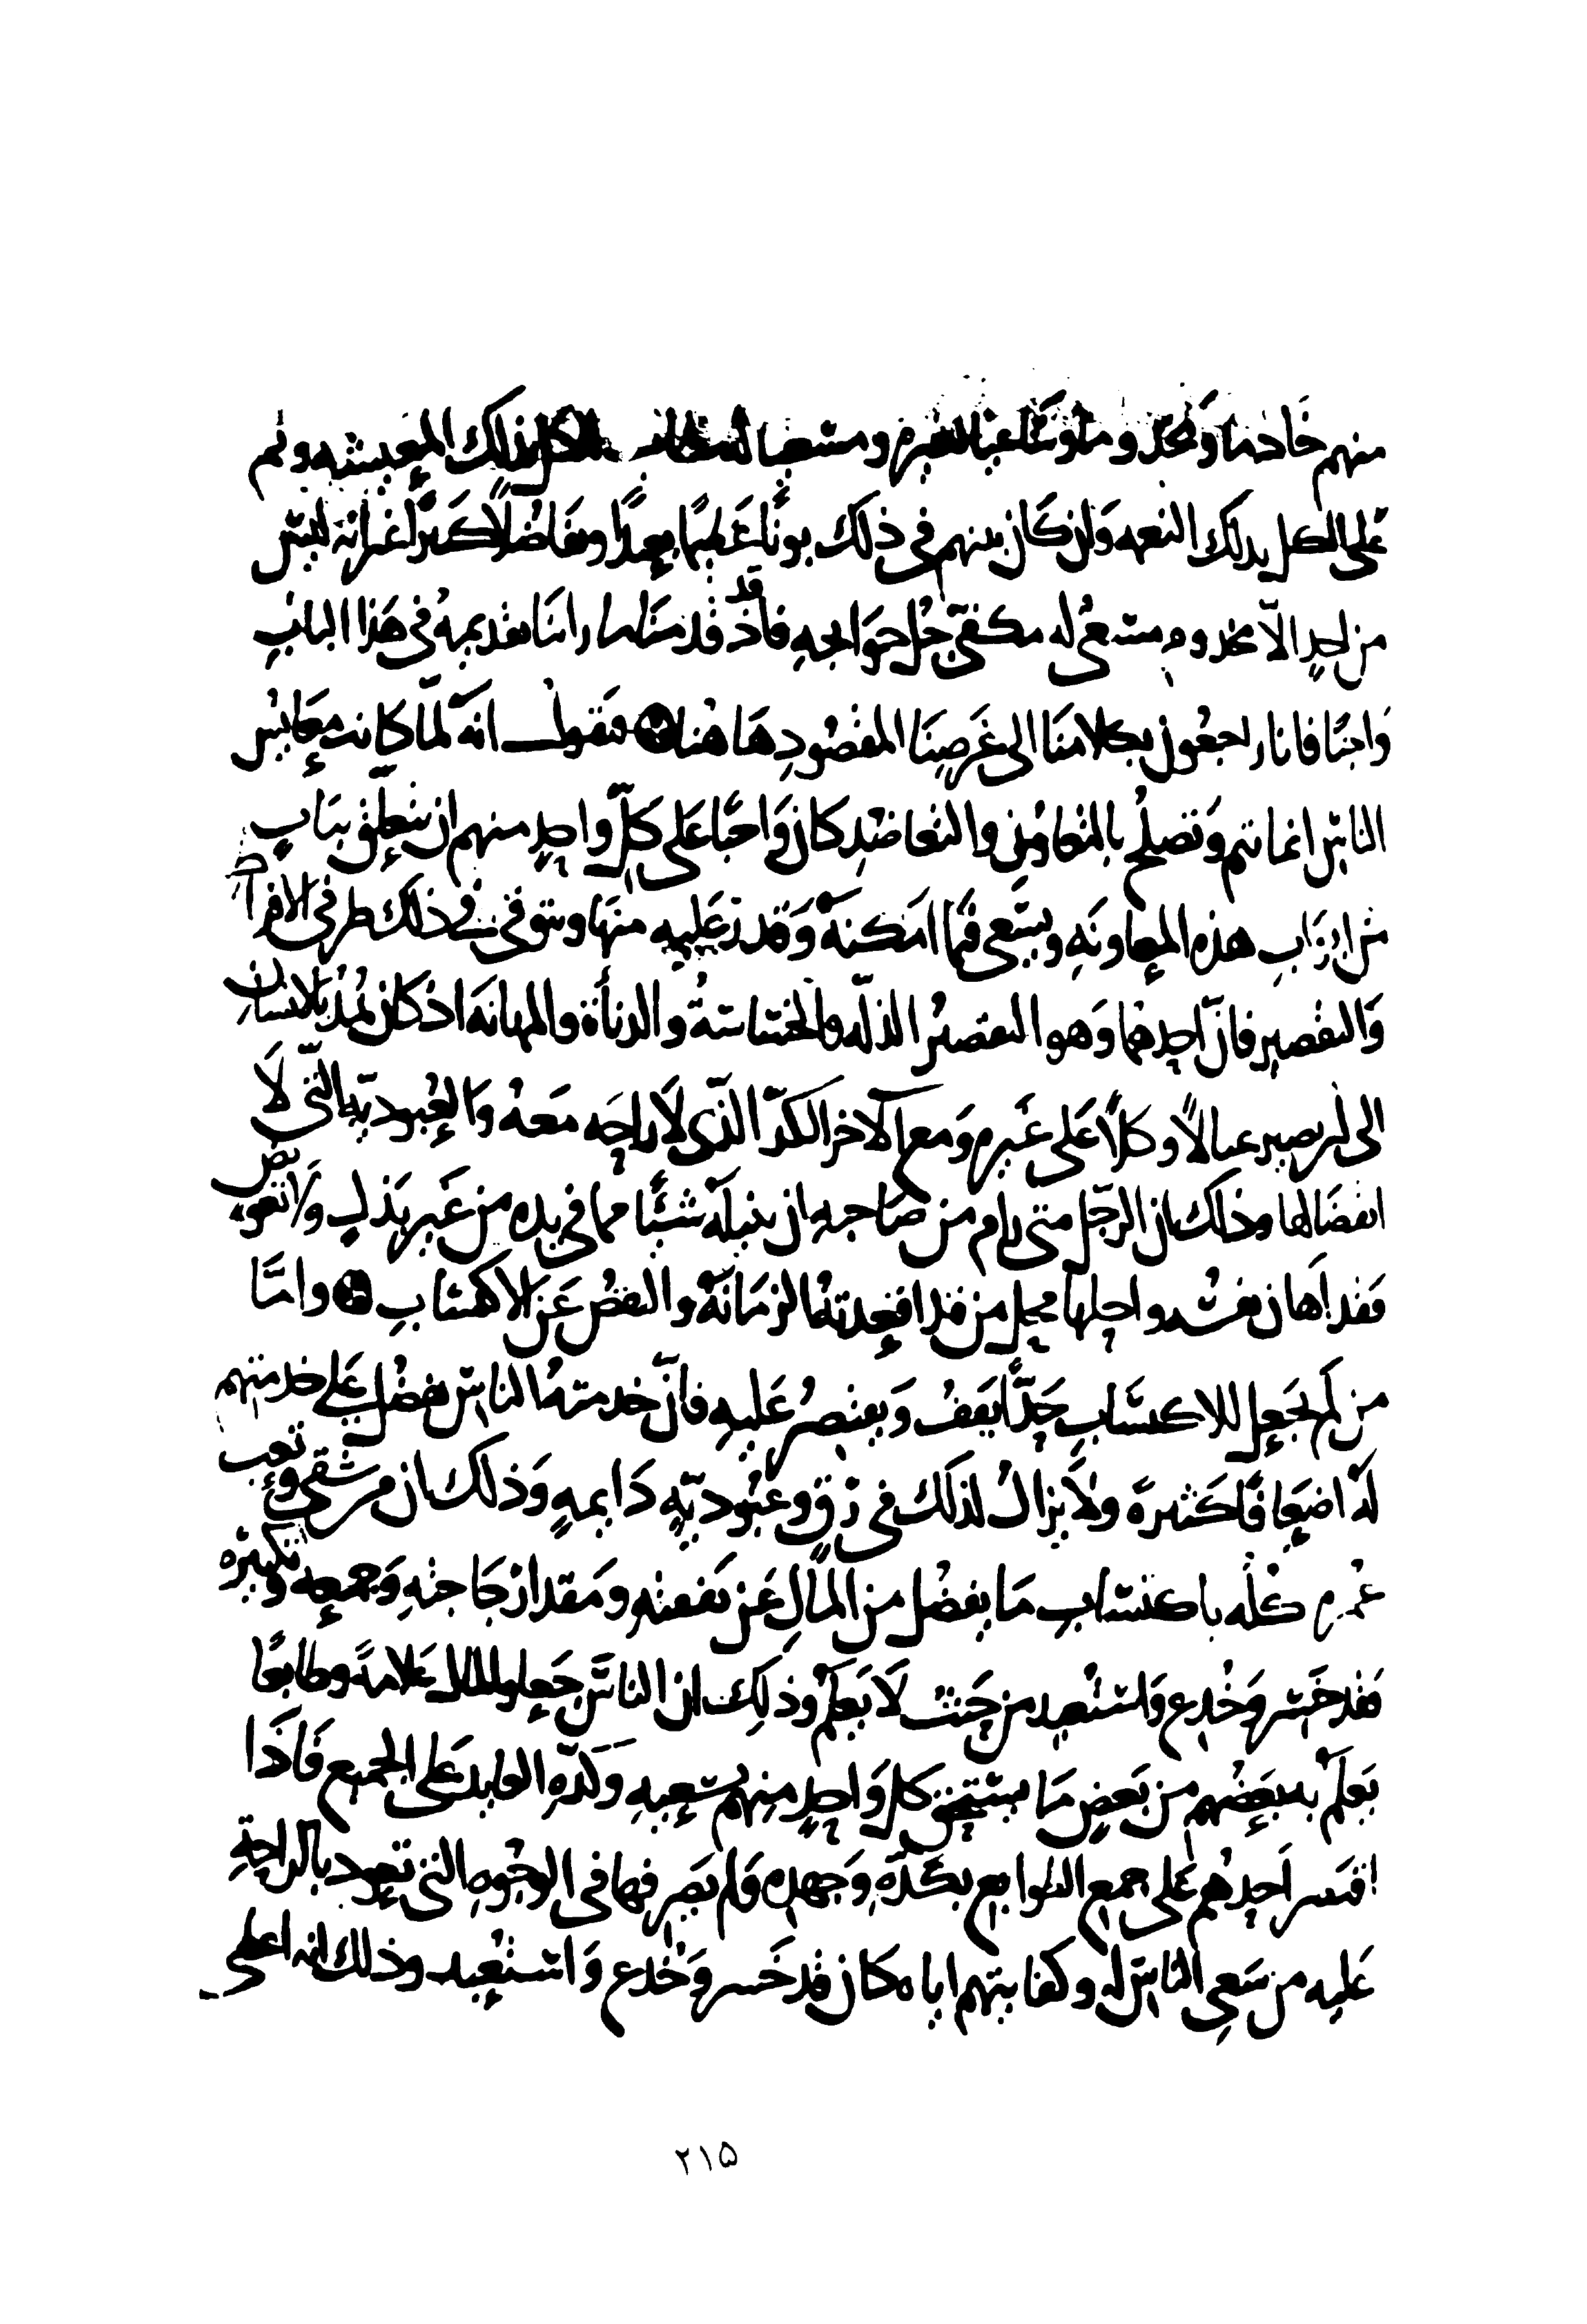 منهم خادما ومخدوما وساعيا لغيره ومسعيا له فطاب للكل بذلك المعيشة وتم
على الكل بذلك النعمه وان كان بينهم في ذلك بونًا عَظيمًا بعيدًا وتفاضلًا كثيرًا غير انه ليس
من احدٍ الّا مخدوم مسعيّ له مكفيّ جُل حوَايجه فاذ قد قدمنَا ما راينَا تقديمهُ في هَذا البابِ
وَاجبًا فانا راجعُون بكلامنَا الى غَرَضِنَا المقصُودِ هَاهُنا فنقول انّه لمّا كانت معَايشُ
الناسِ انما تتم وَتصلحُ بالتعاوُنِ والتعاضُدِ كان وَاجبًا عَلى كلّ وَاحدٍ منهم ان يتعلّق ببَابٍ
من ابوَابِ هذه المعاونَةِ ويسَعى فيمَا امكنهُ وَقدر عَليهِ منهَا ويتوقى في ذلك طرفي الافراط
وَالتقصير فان احدهما وَهو التقصيرُ الذلّه والخساسةُ والدنأة والمهانَة اذ كان يُؤدي بالانسانِ
الى ان يصير عيالًا وكلًّا عَلى غَيرهِ وَمع الآخر الكدّ الذّى لَا راحَه معَهُ وَالعُبوديّه التّى لَا
انقضَا لها وذلك ان الرّجل متى رام من صَاحبه ان ينيلَهُ شيئًا مما في يده من غَيرِ بَذلٍ وَلا تعويض
فقد اَهان نفسُه واحلها محل من قد اقعَدتهُ الزمَانَةُ والنقصُ عَن الاكتسَابِ وامّا
من لَم يَجعل للاكتسَابِ حَدًّا يَقفُ وَيقتصِرُ عَليهِ فانّ خدمتهُ للناس تفضُل على خدمتهم
لَهُ اضعَافًا كثيرةً ولَا يزالُ لذلكَ في رقٍ وعبُوديّةٍ دَايمةٍ وَذلك ان من سَعى وتعب
عُمرهِ كلّه باكتسَابِ مَا يفضُل من المَالِ عَن نَفقتهِ ومَقدارِ حَاجتهِ وَجمعه وتكثيره
فقد خَسِر وَخُدع وَاستُعبد من حَيثُ لَا يَعلمُ وَذلِكَ ان الناسَ جَعلوا المال عَلامةً وطابعًا
يَعلمُ به بَعضُهم من بَعضٍ مَا يَستَحق كل وَاحدٍ منهم بسَعيهِ وَكدّهِ العايد عَلى الجَميعِ فَاذَا
اقتسر اَحدهُم عَلى جمع الطوابع بكدّهِ وَجهدهِ وَلم يَصرفها في الوجُوه التى تعود بالراحَةِ
عَليه من سَعي الناسِ له وكفايتهم اياه كان قد خَسر وَخُدع وَاستُعبد وذلك انه اعطى
٢١٥